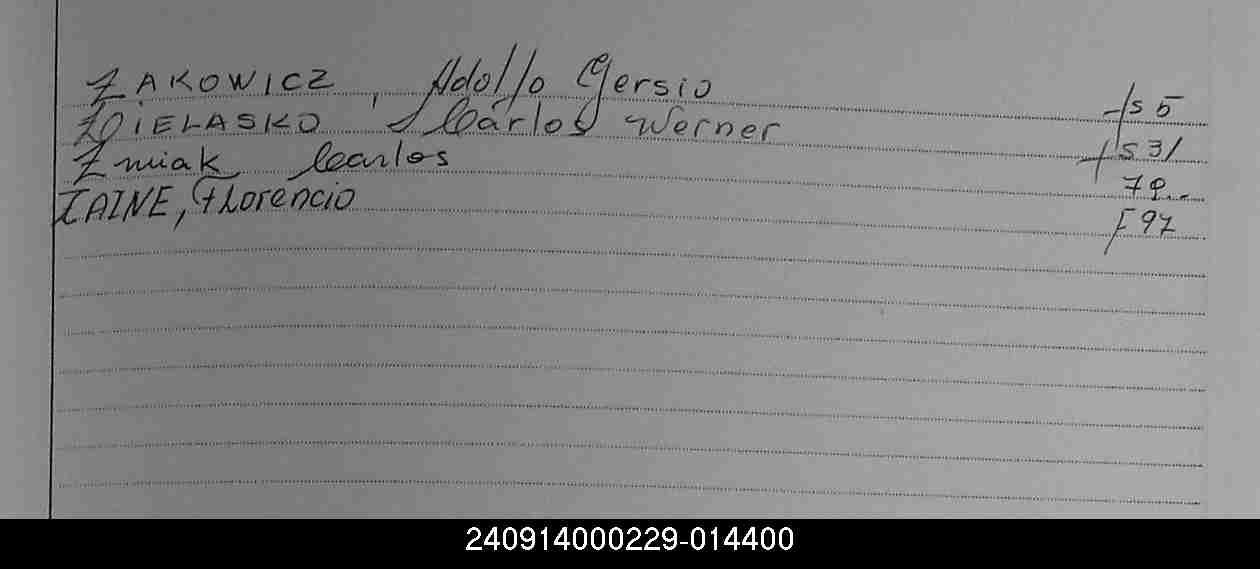 ZAKOWICZ, Adolfo Gersio 5
ZDIELASKO Carlos Werner 31
Zmiak Carlos 79
ZAINE, Florencio F 97
240914000229-014400